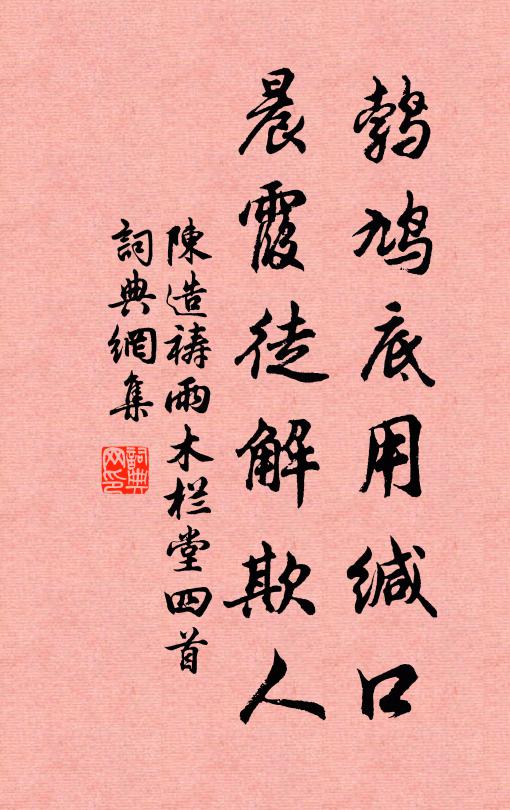 鹁鸠底用缄口
晨霞徒解欺人
陳造祷雨木栏堂四首
詞典網集
詞典网印